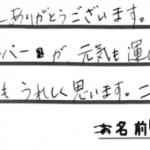 ありがとうございます。
バーが、元気も運
も うれしく思います。こ
お名前